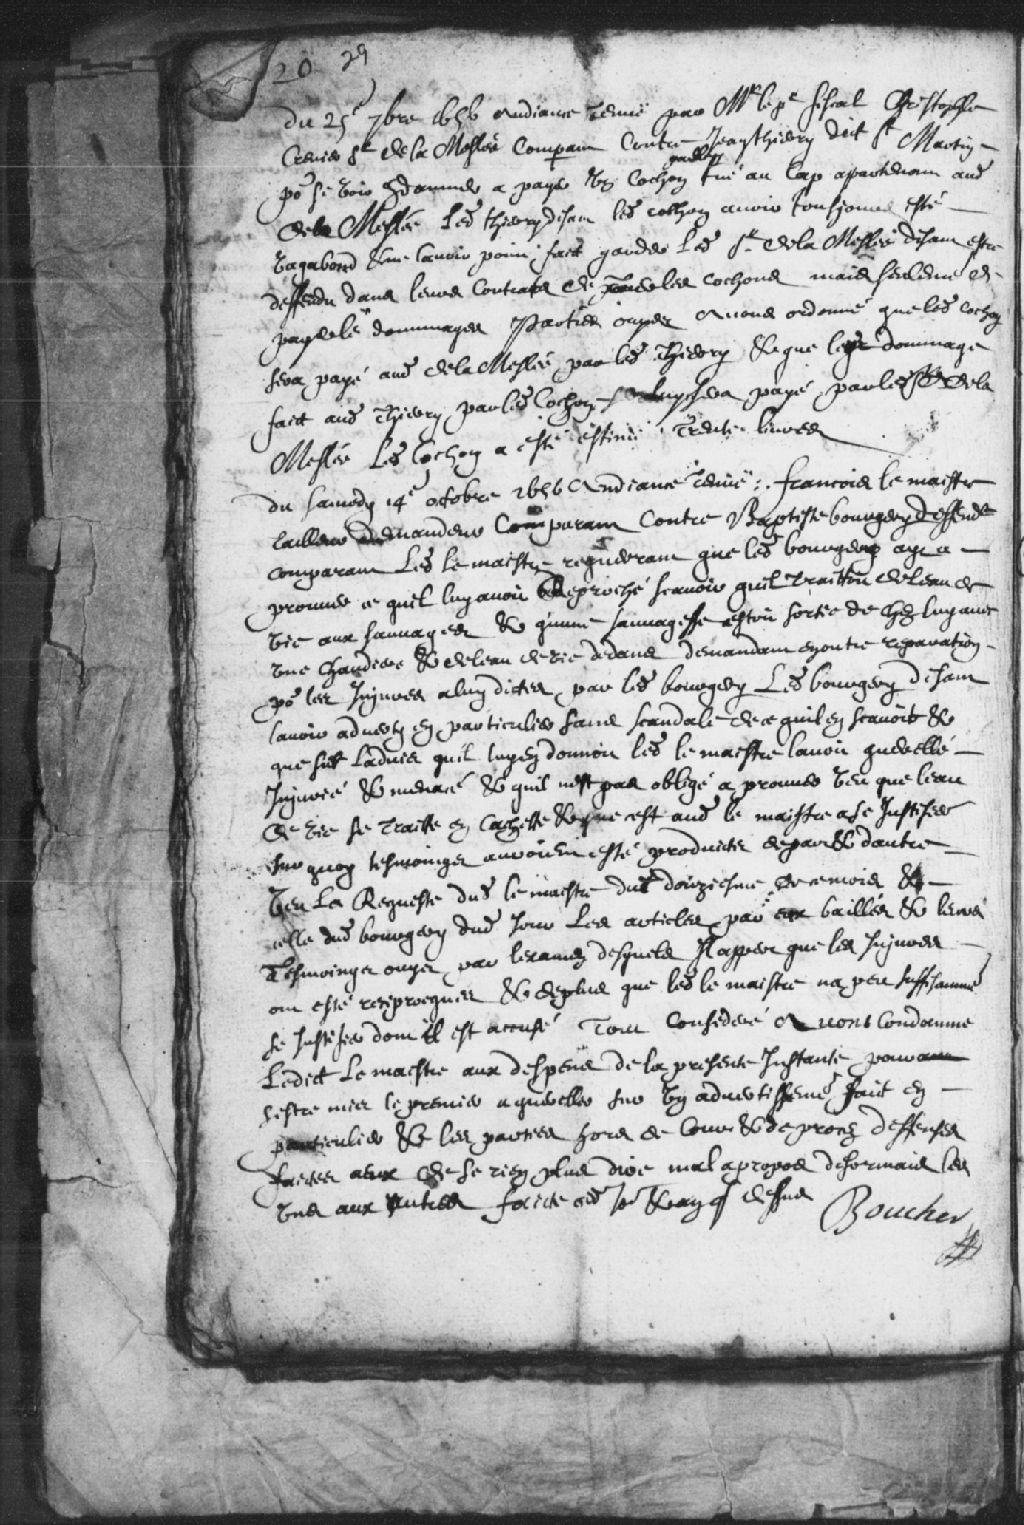 20 29
du 25e 7bre 1656 Audiance tenue par Mr le pr fiscal Christophle
Crevier Sr de la Meslée Comparant Contre Jean Thierry dit St Martin
po se voir Condamner a payer un Cochon tué au Cap apartenant aud
de la Meslée Led thierry disant led cochon avoir tousjours esté
vagabond & ne lavoir point fait garder Led Sr de la Meslée disant estre
deffendu dans leurs Contrats de les cochons mais seulemt de
payer les dommages Parties ouyes Avons ordonné que led cochon
sera payé aud de la Meslée par led Thierry & que le dommage
fait aud Thierry par led Cochon luy sera payé par led Sr de la
Meslée Led Cochon a esté estimé Trente livres
du samedy 14e octobre 1656 Audiance tenue francois le maistre
tailleur demandeur Comparant Contre Baptiste bourgery deffendr
comparant Led le maistre requerant que led bourgery aye a
prouver ce quil luy avoit Reproché scavoir quil traittoit de leau de
vie aux sauvages & quune sauvagesse estoit sortie de chez luy avec
une chaudiere & de leau de vie dedans demandant en outre reparation
po les Injures a luy dictes par led bourgery Led bourgery disant
lavoir adverty en particulier sans scandale de ce quil en scavoit &
que sur Ladvis quil luy en donnoit led le maistre lavoit querellé
Injurié & menacé & quil nest pas obligé a prouver veu que leau
de vie se traitte en cachette & que cest aud le maistre a se Justifier
sur quoy tesmoinges auroient esté produictes de part & dautre
Veu La Requeste dud le maistre du douziesme de ce mois &
celle dud bourgery dud Jour Les articles par eux baillés & leurs
Tesmoinges ouyes par lexamen desquels Il appert que les Injures
ont esté reciproques & deplus que led le maistre na peu suffisamment
se Justifier dont il est accusé Tout Consideré Avons Condamné
Ledict Le maistre aux despens de la presente Instante pour
sestre mis le premier a quereller sur un advertissemt fait en
particulier & les parties hors de Cour & de proces deffenses
faictes aux de se rien plus dire mal a propos desormais les
uns aux autres faict les Jour & an q dessus
Boucher